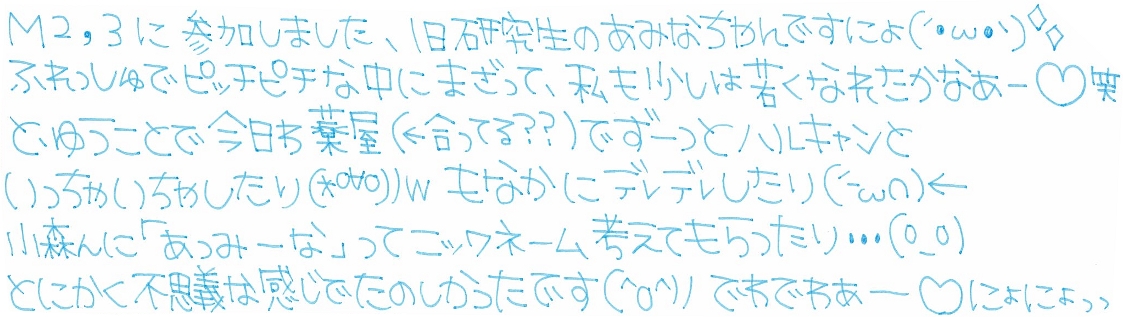 M2,3に参加しました、旧研究生のあみなちゃんですにょ(´・ω・`)◇◇
ふれっしゅでピッチピチな中にまざって、私も少しは若くなれたかなあー♡笑
と、ゆうことで今日わ葉屋(←合ってる??)でずーっとハルキャンと
いっちゃいちゃしたり(*°∀°))w もなかにデレデレしたり(´-ω∩)←
小森んに「あっみーな」ってニックネーム考えてもらったり…(0_0)
とにかく不思議な感じでたのしかったです(^o^)丿でわでわあー♡にょにょっっ